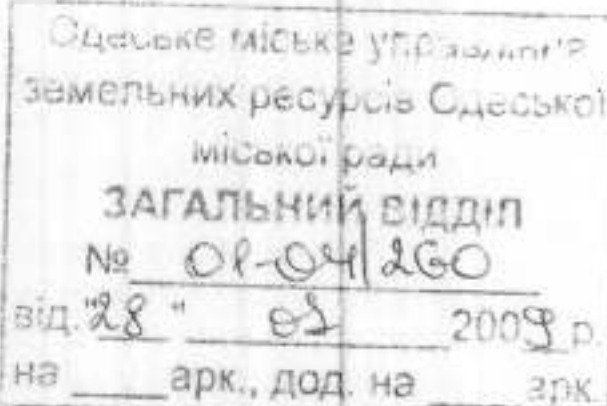 Одеське міське управління
земельних ресурсів Одеської
міської ради
ЗАГАЛЬНИЙ ВІДДІЛ
№ 01-04/260
від "28" 2009 р.
на ____ арк., дод. на ____ арк.